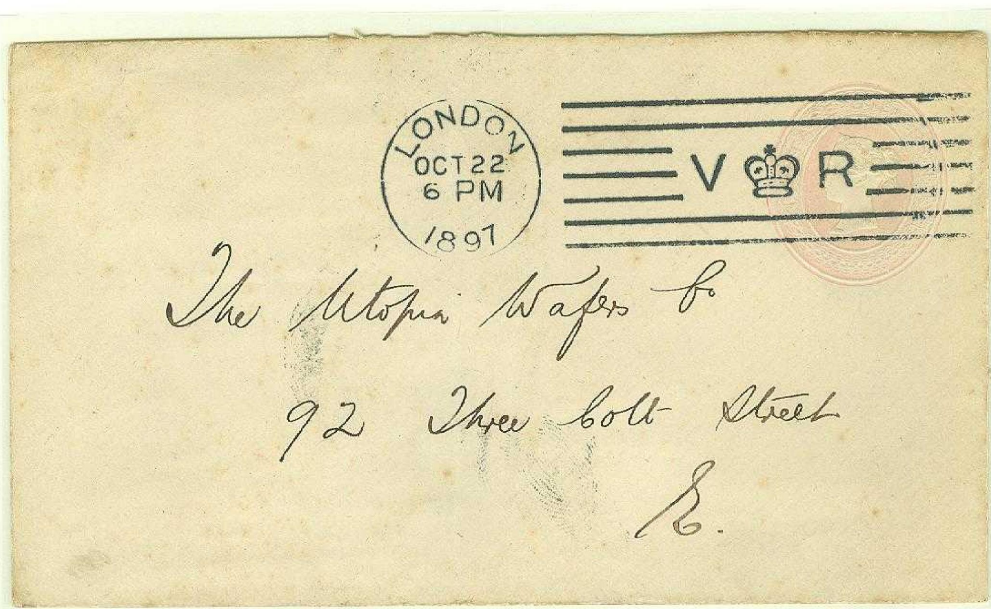 LONDON
OCT 22
6 PM
1897
V R
The Utopia Wafers Co
92 Three Colt Street
E.